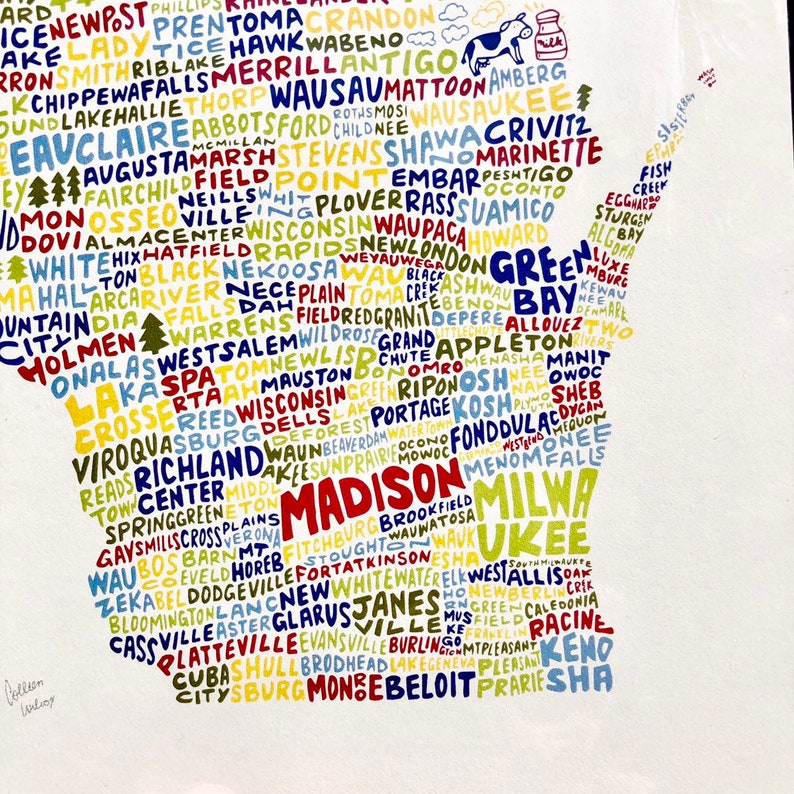 ARD NEWPOST PHILLIPS RHINELANDER
ICE LADY PRENTICE TOMAHAWK CRANDON
LAKE SMITH RIBLAKE WABENO
RRON MERRILL ANTIGO Milk
LK CHIPPEWAFALLS THORP WAUSAU MATTOON AMBERG
OUND LAKEHALLIE ABBOTSFORD ROTHSCHILD MOSINEE WAUSAUKEE
EAUCLAIRE MCMILLAN CRIVITZ SISTERBAY
AUGUSTA MARSHFIELD STEVENS POINT SHAWANO MARINETTE EPHRAIM
EY FAIRCHILD EMBARRASS PESHTIGO FISH CREEK
MONDOVI OSSEO NEILLSVILLE WHITING PLOVER OCONTO EGGHARBOR
ALMACENTER WISCONSIN RAPIDS WAUPACA SUAMICO STURGEN BAY
WHITEHALL HIXTON HATFIELD NEWLONDON HOWARD ALGOMA
MA ARCADIA BLACK RIVER FALLS NEKOOSA WEYAUWEGA GREEN BAY LUXEMBURG
NECEDAH PLAINFIELD WAUTOMA BLACK CREEK ASHWAUBENON KEWAUNEE
OUNTAIN CITY WARRENS REDGRANITE DEPERE ALLOUEZ DENMARK
HOLMEN WESTSALEM WILDROSE GRAND CHUTE LITTLECHUTE TWO RIVERS
ONALASKA SPARTA TOMAH NEWLISBON APPLETON MANITOWOC
LACROSSE MAUSTON OMRO MENASHA
REEDSBURG WISCONSIN DELLS GREEN LAKE RIPON OSHKOSH NEENAH PLYMOUTH SHEBOYGAN
VIROQUA DEFOREST PORTAGE FONDDULAC MEQUON
RICHLAND CENTER WAUNAKEE BEAVERDAM WATERTOWN WESTBEND
READSTOWN SUNPRAIRIE OCONOMOWOC MENOMONEEFALLS
MIDDLETON MADISON MILWAUKEE
SPRINGGREEN BROOKFIELD
GAYSMILLS CROSSPLAINS VERONA FITCHBURG WAUWATOSA
BOSCOBEL BARNEVELD MT HOREB STOUGHTON WAUKESHA SOUTHMILWAUKEE
WAUZEKA DODGEVILLE FORTATKINSON WESTALLIS OAK CREEK
BLOOMINGTON LANCASTER NEW GLARUS WHITEWATER ELKHORN NEWBERLIN
CASSVILLE JANESVILLE MUSKEGO GREENFIELD CALEDONIA
PLATTEVILLE EVANSVILLE BURLINGTON FRANKLIN RACINE
CUBA CITY SHULLSBURG BRODHEAD LAKEGENEVA MTPLEASANT
MONROE BELOIT PLEASENT PRARIE KENOSHA
Colleen Wilcox